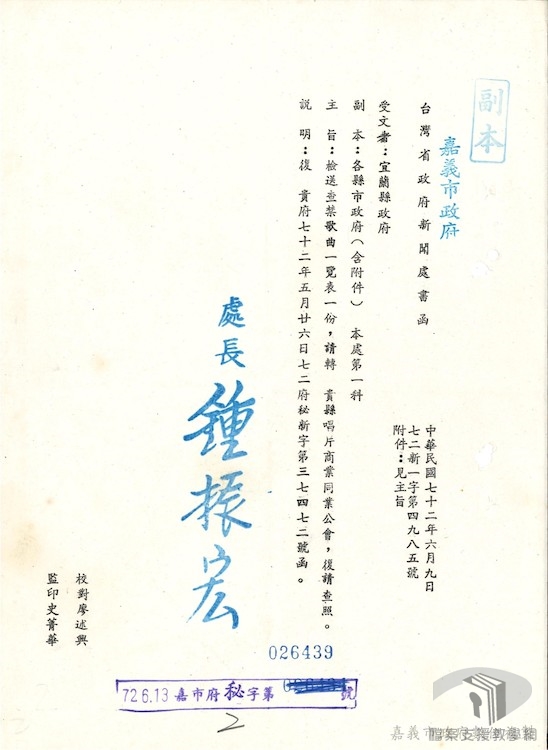 副本
嘉義市政府
台灣省政府新聞處書函
中華民國七十二年六月九日
七二新一字第四九八五號
附件：見主旨
受文者：宜蘭縣政府
副　本：各縣市政府（含附件）　本處第一科
主　旨：檢送查禁歌曲一覽表一份，請轉　貴縣唱片商業同業公會，復請查照。
說　明：復　貴府七十二年五月廿六日七二府秘新字第三七四七二號函。
處長 鍾振宏
校對廖述興
監印史菁華
026439
72.6.13 嘉市府秘字第 號
2
檔案支援教學網